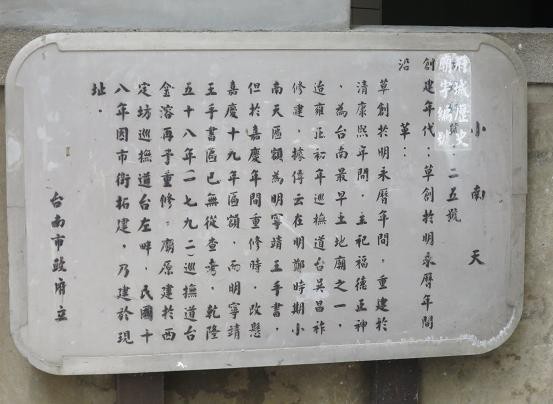 小南天
號：二五號
創建年代：草創於明永曆年間
沿革：
草創於明永曆年間，重建於
清康熙年間，主祀福德正神
，為台南最早土地廟之一，
造雍正初年巡撫道台吳昌祚
修建，據傳云在明鄭時期小
南天匾額為明寧靖王手書，
但於嘉慶年間重修時，改懸
嘉慶十九年匾額，而明寧靖
王手書匾已無從查考，乾隆
五十八年(一七九二)巡撫道台
金溶再予重修。廟原建於西
定坊巡撫道台左畔，民國十
八年因市街拓建，乃建於現
址。
台南市政府立